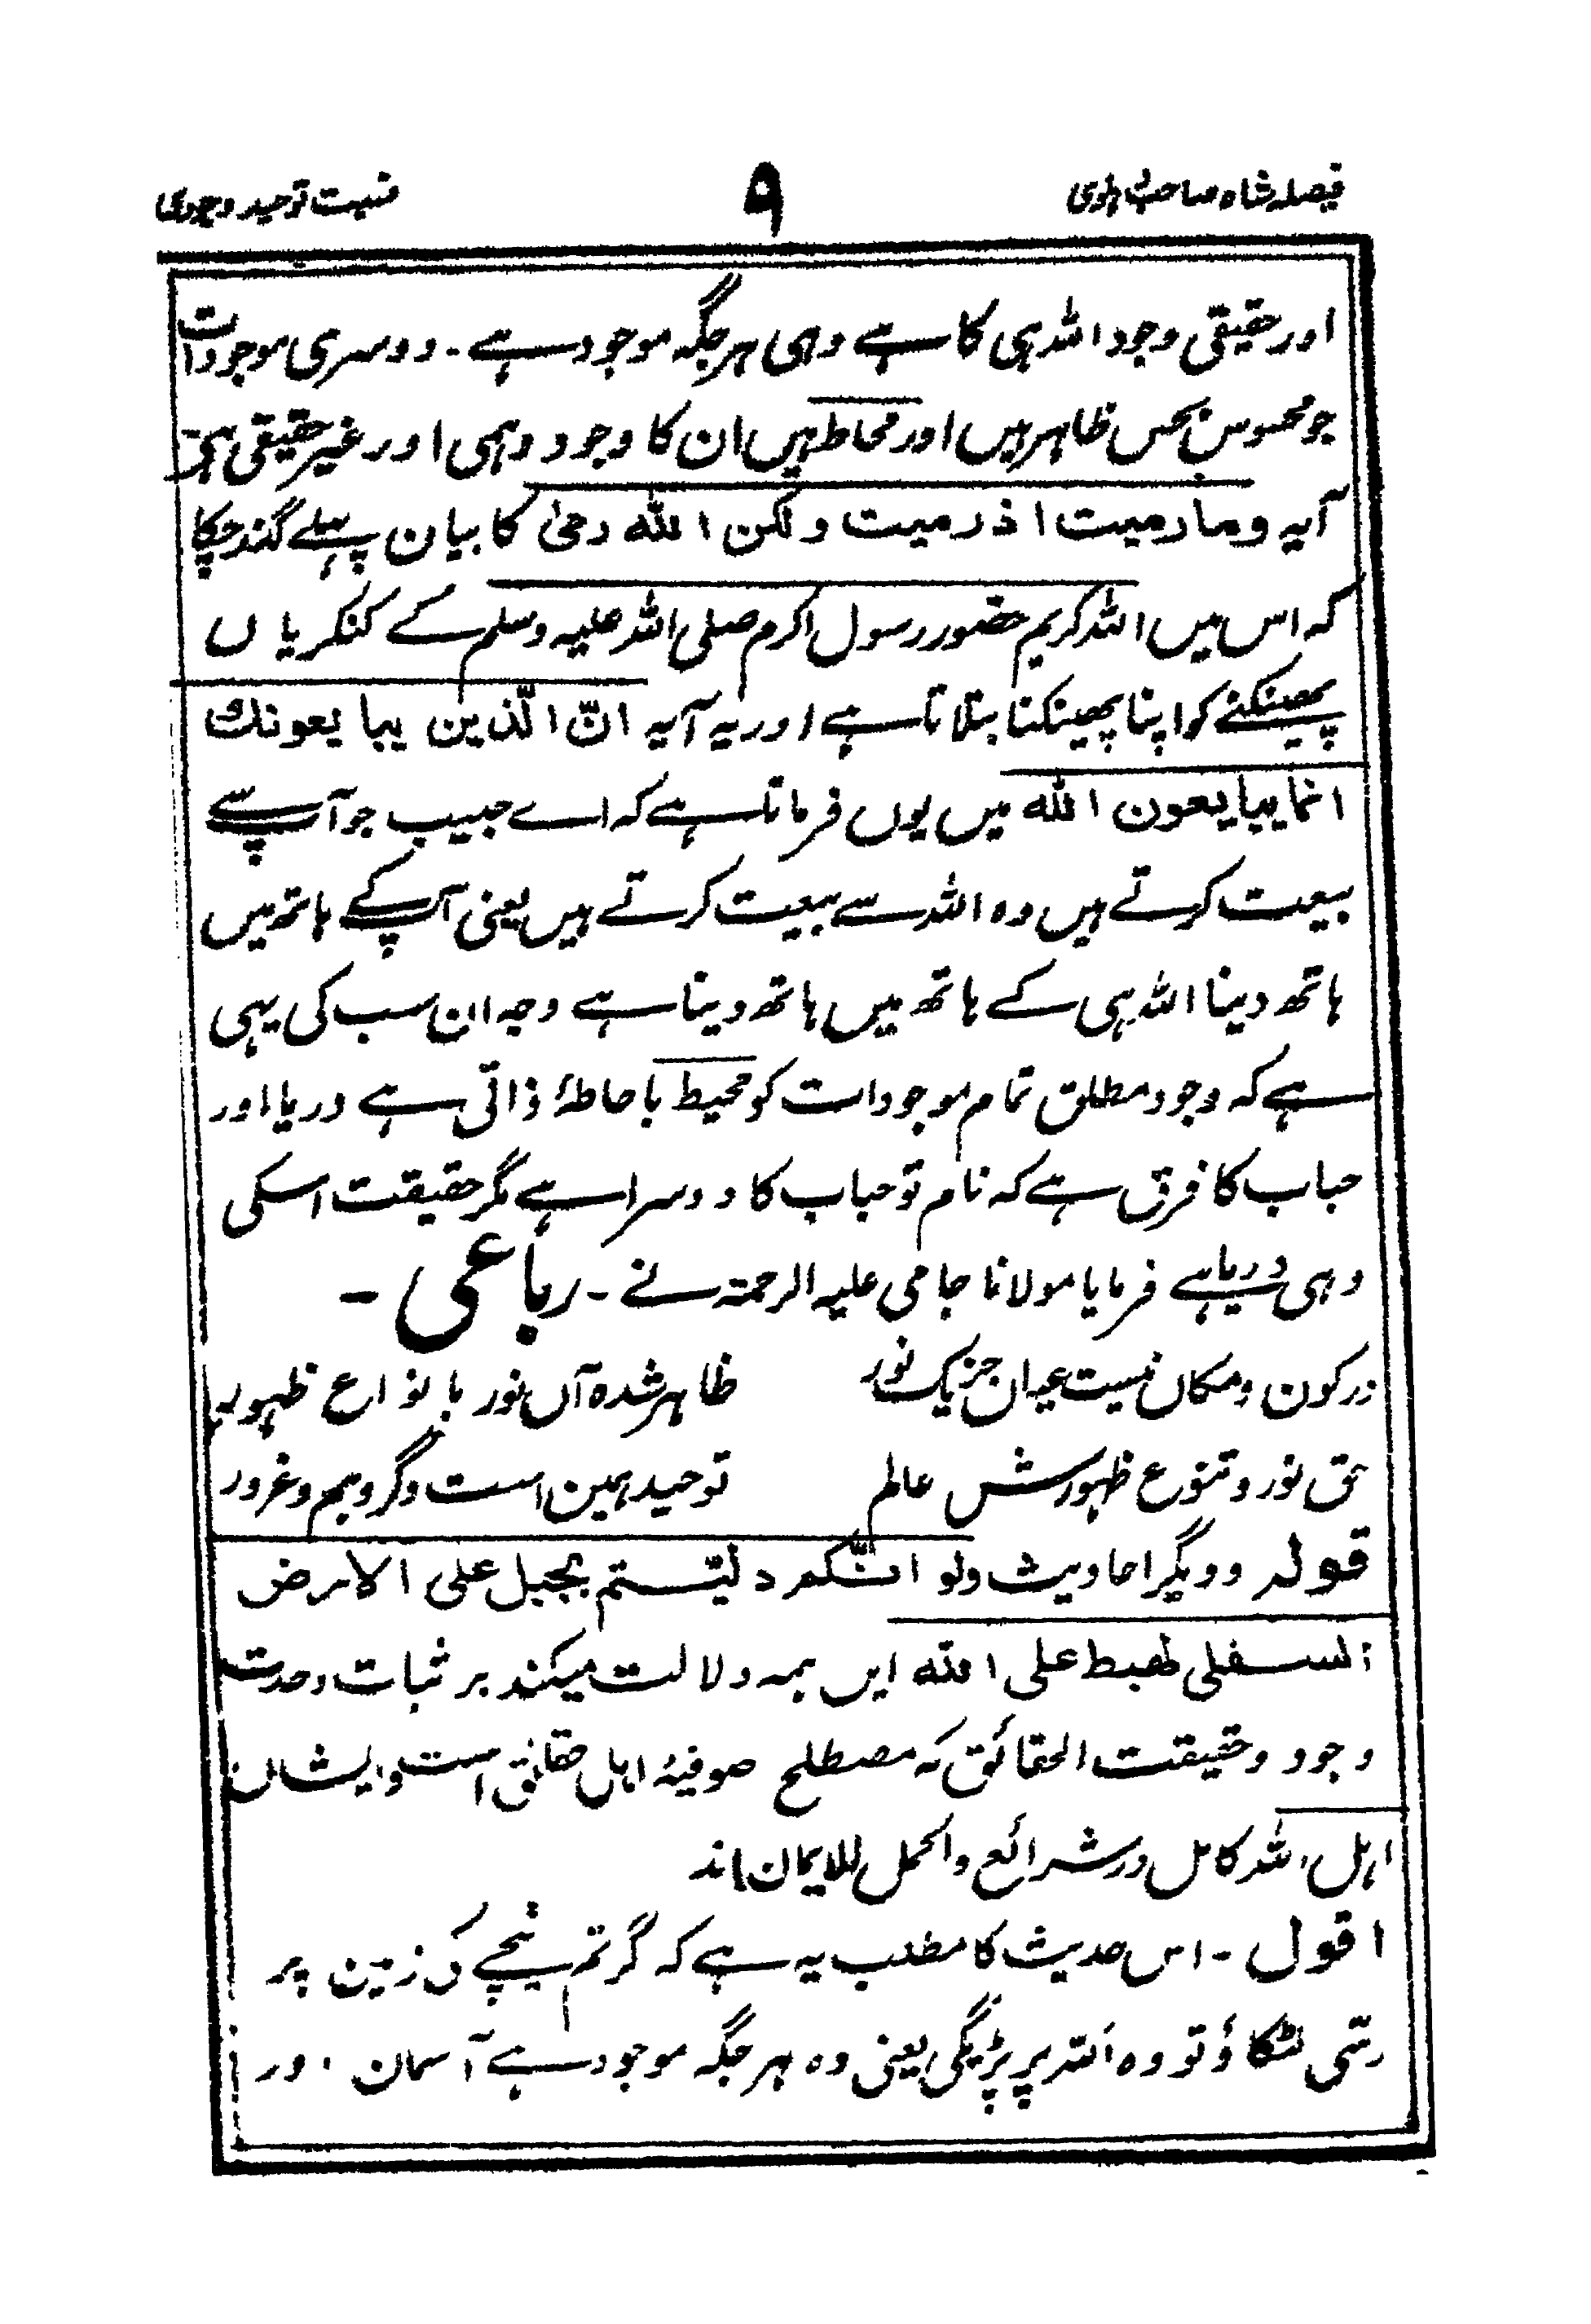 فیصلہ شاہ صاحب دہلوی
۹
نسبت توحید وجودی
اور حقیقی وجود اللہ ہی کا ہے وہی ہر جگہ موجود ہے ۔ دوسری موجودات
جو محسوس بحس ظاہر ہیں اور محاط ہیں ان کا وجود وہمی اور غیر حقیقی ہے
آیہ وما رمیت اذ رمیت ولکن اللہ رمیٰ کا بیان پہلے گذر چکا
کہ اس میں اللہ کریم حضور رسول اکرم صلی اللہ علیہ وسلم کے کنکریاں
پھینکنے کو اپنا پھینکنا بتلاتا ہے اور یہ آیہ انّ الّذین یبایعونك
انما یبایعون اللہ میں یوں فرماتا ہے کہ اے حبیب جو آپ سے
بیعت کرتے ہیں وہ اللہ سے بیعت کرتے ہیں یعنی آپ کے ہاتھ میں
ہاتھ دینا اللہ ہی کے ہاتھ میں ہاتھ دینا ہے وجہ ان سب کی یہی
ہے کہ وجود مطلق تمام موجودات کو محیط باحاطۂ ذاتی ہے دریا اور
حباب کا فرق ہے کہ نام تو حباب کا دوسرا ہے مگر حقیقت اسکی
وہی دریا ہے فرمایا مولانا جامی علیہ الرحمۃ نے ۔ رباعی ۔
در کون و مکاں نیست عیاں جز یک نور ظاہر شدہ آں نور بانواع ظہور
حق نور و تنوع ظہورش عالم توحید ہمین است وگر وہم و غرور
قولہ و دیگر احادیث ولو انّکم دلیّتم بجبل علی الارض
السفلی لھبط علی اللہ ایں ہمہ دلالت میکند بر ثبات وحدت
وجود وحقیقت الحقائق کہ مصطلح صوفیۂ اہل حقائق است وایشان
اہل اللہ کامل در شرائع واکمل للایمان اند
اقول ۔ اس حدیث کا مطلب یہ ہے کہ گر تم نیچے کی زمین پر
رسّی لٹکاؤ تو وہ اللہ پر پڑیگی یعنی وہ ہر جگہ موجود ہے آسمان اور